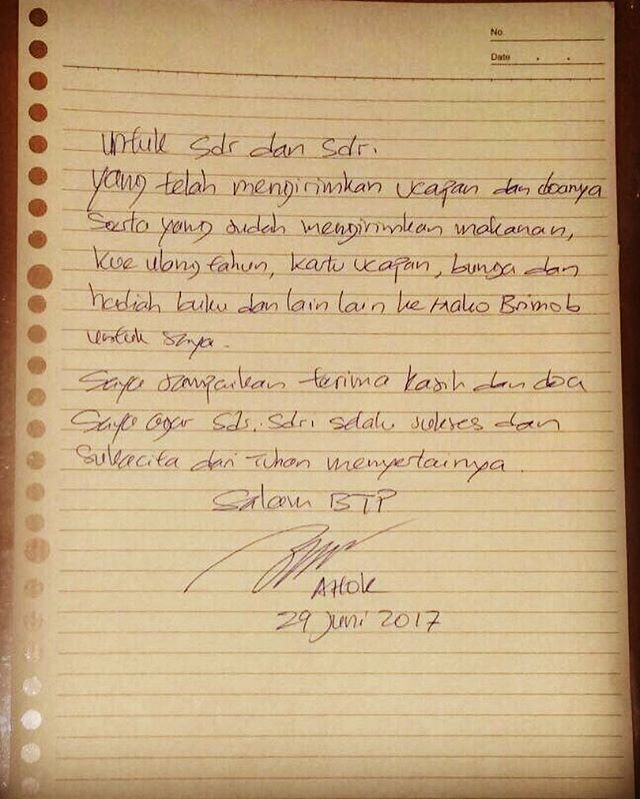 No.
Date . .
untuk sdr dan sdri.
yang telah mengirimkan ucapan dan doanya
Serta yang sudah mengirimkan makanan,
kue ulang tahun, kartu ucapan, bunga dan
hadiah buku dan lain lain ke Mako Brimob
untuk saya.
Saya sampaikan terima kasih dan doa
Saya agar sdr. sdri selalu sukses dan
Sukacita dari Tuhan menyertainya.
Salam BTP
AHok
29 Juni 2017